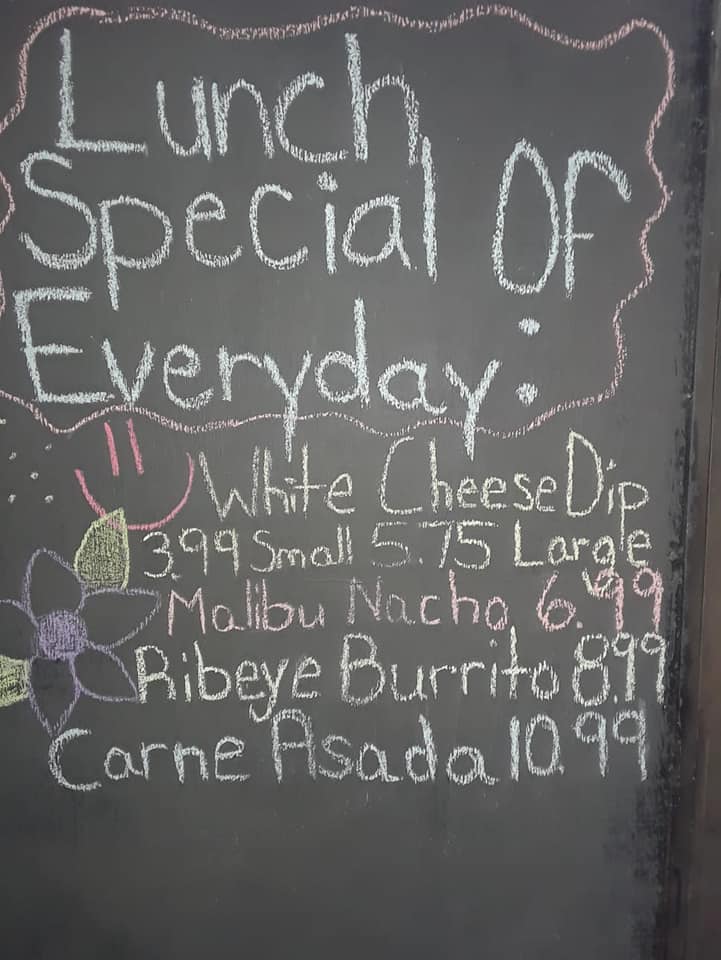 Lunch
Special Of
Everyday:
White Cheese Dip
3.99 Small 5.75 Large
Malibu Nacho 6.99
Ribeye Burrito 8.99
Carne Asada 10.99